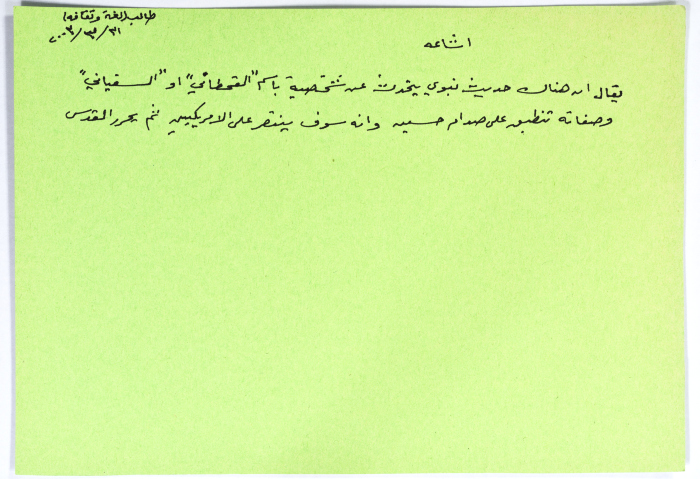 طالب (لغة وثقافة)
٣١/٣/٢٠٠٣
اشاعه
يقال ان هناك حديث نبوي يتحدث عن شخصية باسم "القحطاني" او "السفياني"
وصفاته تنطبق على صدام حسين وانه سوف ينتصر على الامريكيين ثم يحرر القدس